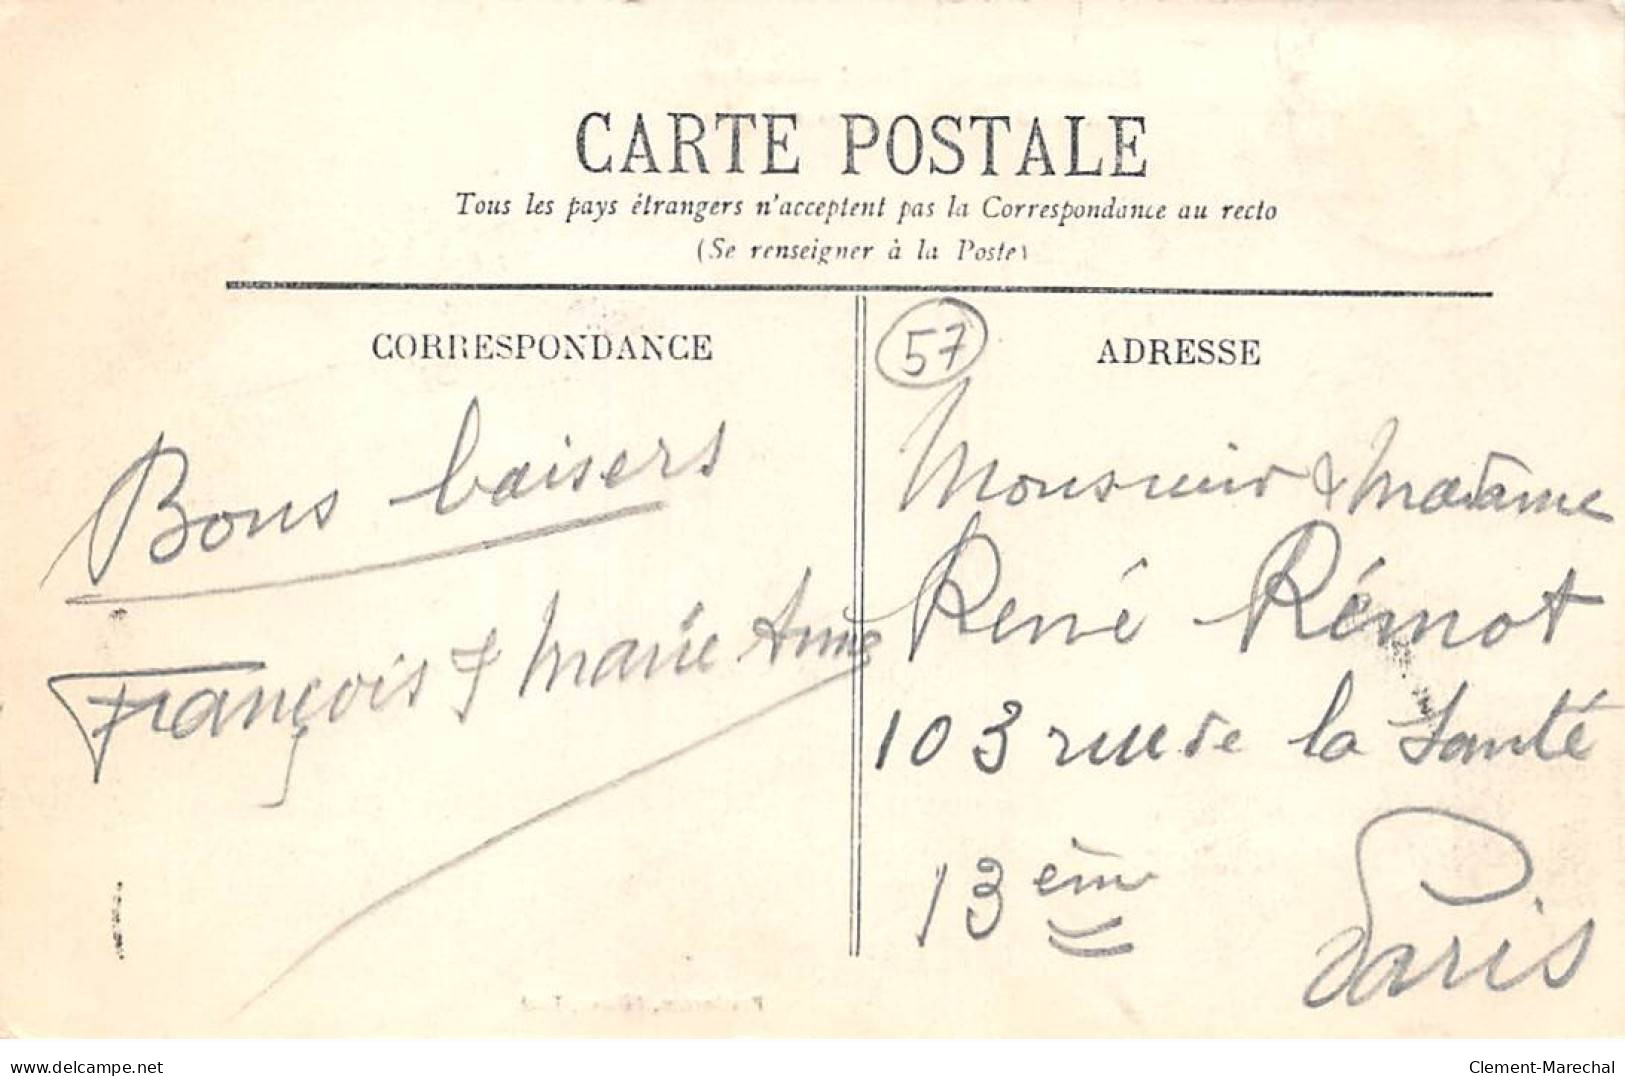 CARTE POSTALE
Tous les pays étrangers n'acceptent pas la Correspondance au recto
(Se renseigner à la Poste)
CORRESPONDANCE
Bons baisers
François & Marie Anne
57
ADRESSE
Monsieur & Madame
René Rémot
103 rue de la Santé
13 ème
Paris
delcampe.net
Clement-Marechal